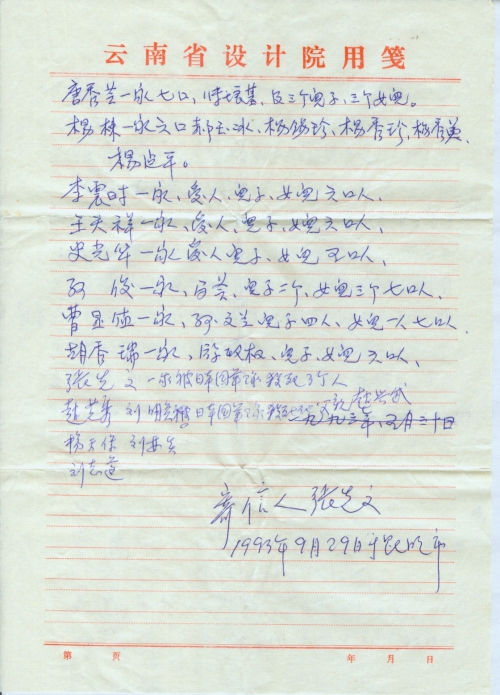 云南省设计院用笺
唐秀兰一家七口，培善，及三个儿子、三个女儿。
杨栋一家六口郝玉冰、杨锡珍、杨秀珍、杨秀英、
杨正平。
李震时一家，爱人，儿子、女儿六口人、
王天祥一家，爱人、儿子、女儿六口人、
史光华一家爱人儿子、女儿五口人、
俊一家，儿子二个，女儿三个七口人、
曹显值一家，文兰儿子四人、女儿一人七口人、
胡秀瑞一家、游政权、儿子、女儿六口人、
张先文一家被日本国军队杀死3个人
赵芝秀 刘明 被日本国军队杀死 赵兴武
一九九三年、五月三十日
杨天保 刘
刘志道
寄信人张先文
1993年9月29日于昆明市
第 页 年 月 日